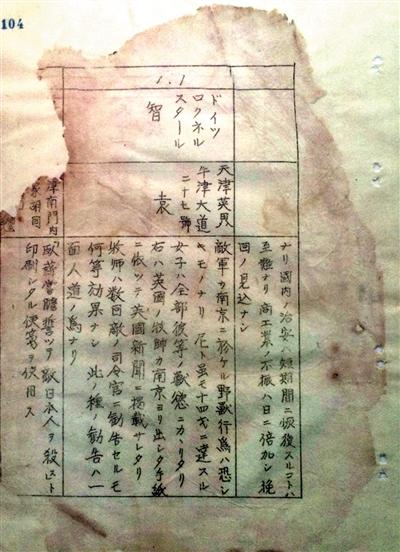 104
1.1
ドイツ
ロクネル
スタール
智
天津英界
牛津大道
二十七號
袁
ナリ國内ノ治安ハ短期間ニ恢復スルコトハ
至難ナリ商工業ノ不振ハ日ニ倍加シ挽
回ノ見込ナシ
敵軍ノ南京ニ於ケル野獸行爲ハ恐シ
キモノナリ尼ト虽モ十四才ニ達スル
女子ハ全部彼等ノ獸慾ニカヽリタリ
右ハ英國ノ牧師カ南京ヨリ出シタ手紙
ニ依ッテ英國新聞ニ掲載サレタリ
牧師ハ数回敵ノ司令官ニ勧告セルモ
何等効果ナシ此ノ種ノ勧告ハ一
面人道ノ爲ナリ
津南門内
家胡同
「臥薪嘗膽誓ッテ敵日本人ヲ殺シト
印刷シタル便箋ヲ使用ス